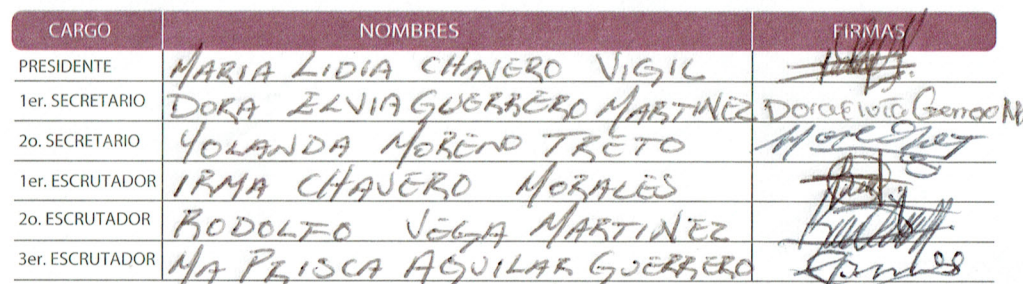 CARGO NOMBRES FIRMAS
PRESIDENTE MARIA LIDIA CHAVERO VIGIL
1er. SECRETARIO DORA ELVIA GUERRERO MARTINEZ Dora Elvia Guerrero M
2o. SECRETARIO YOLANDA MORENO TRETO
1er. ESCRUTADOR IRMA CHAVERO MORALES
2o. ESCRUTADOR RODOLFO VEGA MARTINEZ
3er. ESCRUTADOR MA PRISCA AGUILAR GUERRERO